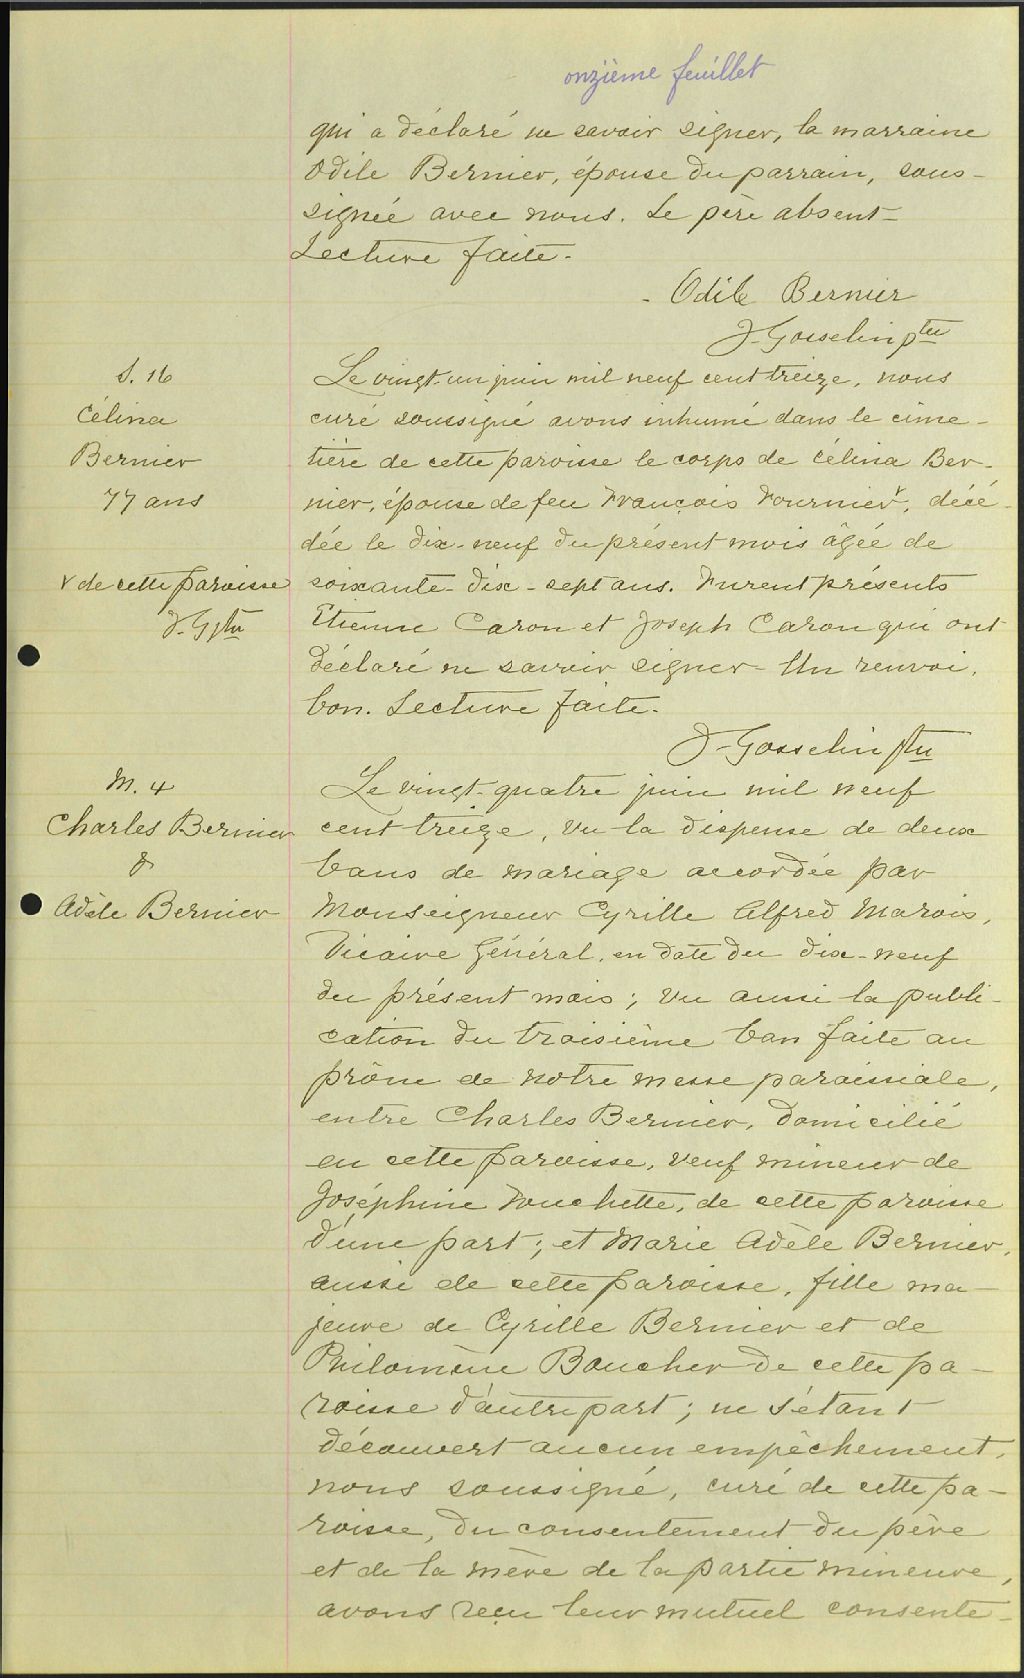 onzième feuillet
qui a déclaré ne savoir signer, la marraine
Odile Bernier, épouse du parrain, sous-
signée avec nous. Le père absent-
Lecture faite-
- Odile Bernier
J-Gosselin ptre
S. 16
Célina
Bernier
77 ans
Le vingt-un juin mil neuf cent treize, nous
curé soussigné avons inhumé dans le cime-
tière de cette paroisse le corps de Célina Ber-
nier, épouse de feu François Fournier v, décé-
dée le dix-neuf du présent mois âgée de
v de cette paroisse
J-G ptre
soixante-dix-sept ans. Furent présents
Etienne Caron et Joseph Caron qui ont
déclaré ne savoir signer- Un renvoi,
bon. Lecture faite-
J-Gosselin ptre
M. 4
Charles Bernier
&
Adèle Bernier
Le vingt-quatre juin mil neuf
cent treize, vu la dispense de deux
bans de mariage accordée par
Monseigneur Cyrille Alfred Marois,
Vicaire Général, en date du dix-neuf
du présent mois; vu aussi la publi-
cation du troisième ban faite au
prône de notre messe paroissiale,
entre Charles Bernier, domicilié
en cette paroisse, veuf mineur de
Joséphine Fouchette, de cette paroisse
d'une part; et Marie Adèle Bernier,
aussi de cette paroisse, fille ma-
jeure de Cyrille Bernier et de
Philomène Boucher de cette pa-
roisse d'autre part; ne s'étant
découvert aucun empêchement,
nous soussigné, curé de cette pa-
roisse, du consentement du père
et de la mère de la partie mineure,
avons reçu leur mutuel consente-